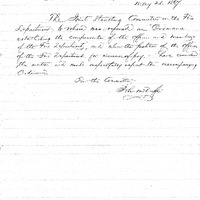 The Joint Standing Committee on the Fire
Department, to whom was referred an Ordinance
establishing the compensation of the officers and members
of the Fire Department, and the of the officers
of the Fire Department, have considered
the matter and would respectfully report the accompanying
Ordinance.
For the Committee,